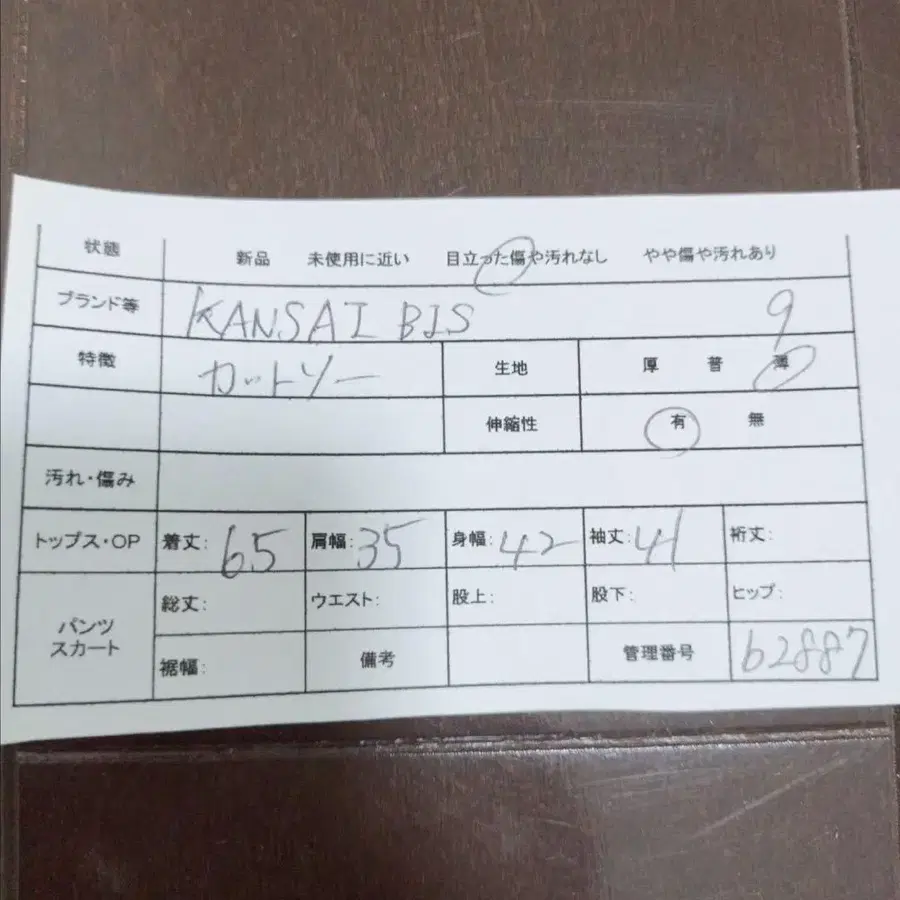 状態 新品 未使用に近い 目立った傷や汚れなし やや傷や汚れあり
ブランド等 KANSAI BIS 9
特徴 カットソー 生地 厚 普 薄
伸縮性 有 無
汚れ・傷み
トップス・OP 着丈: 65 肩幅: 35 身幅: 42 袖丈: 41 裄丈:
パンツ スカート 総丈: ウエスト: 股上: 股下: ヒップ:
裾幅: 備考 管理番号 62887